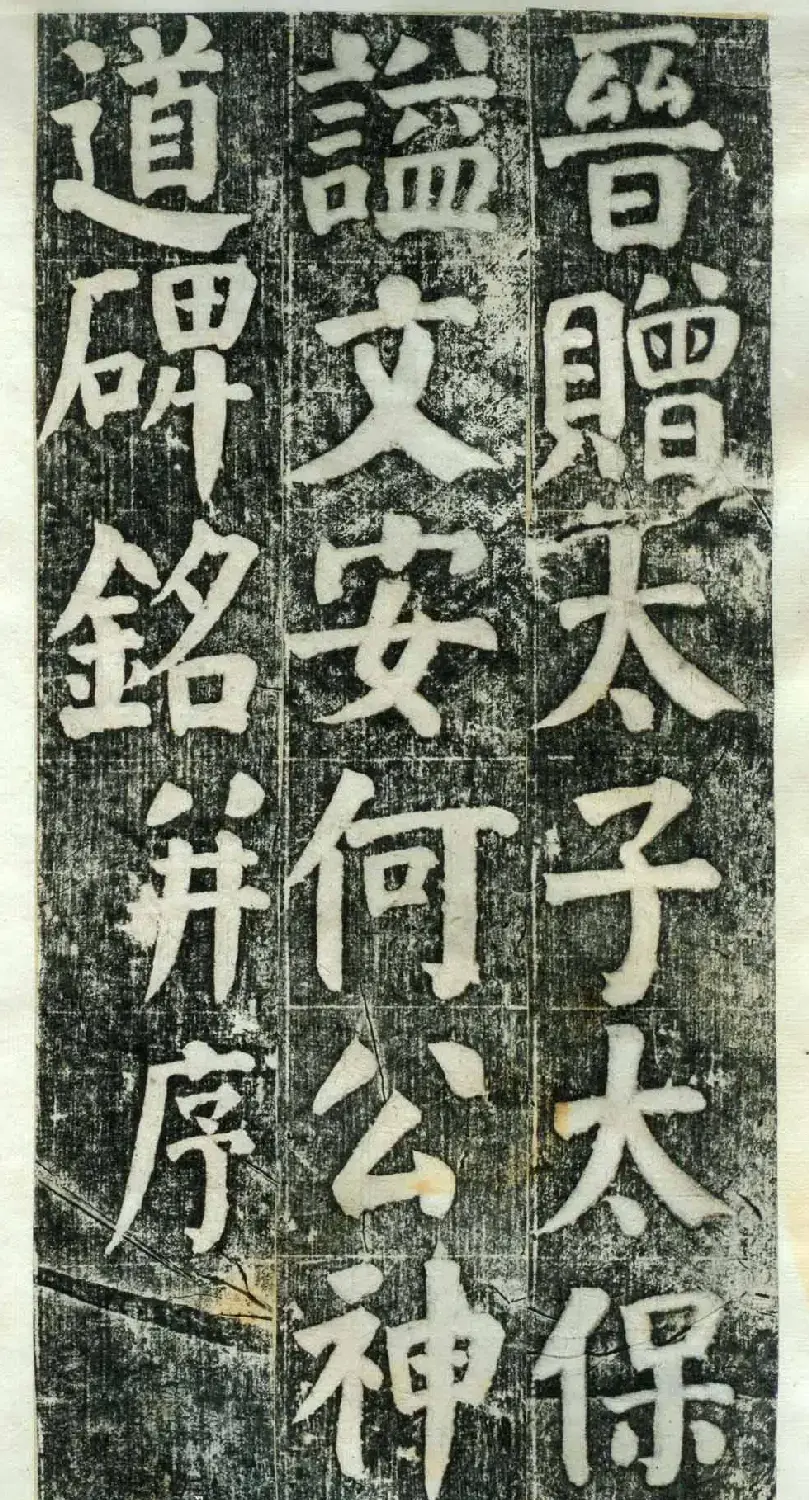 晉贈太子太保
謚文安何公神
道碑銘并序